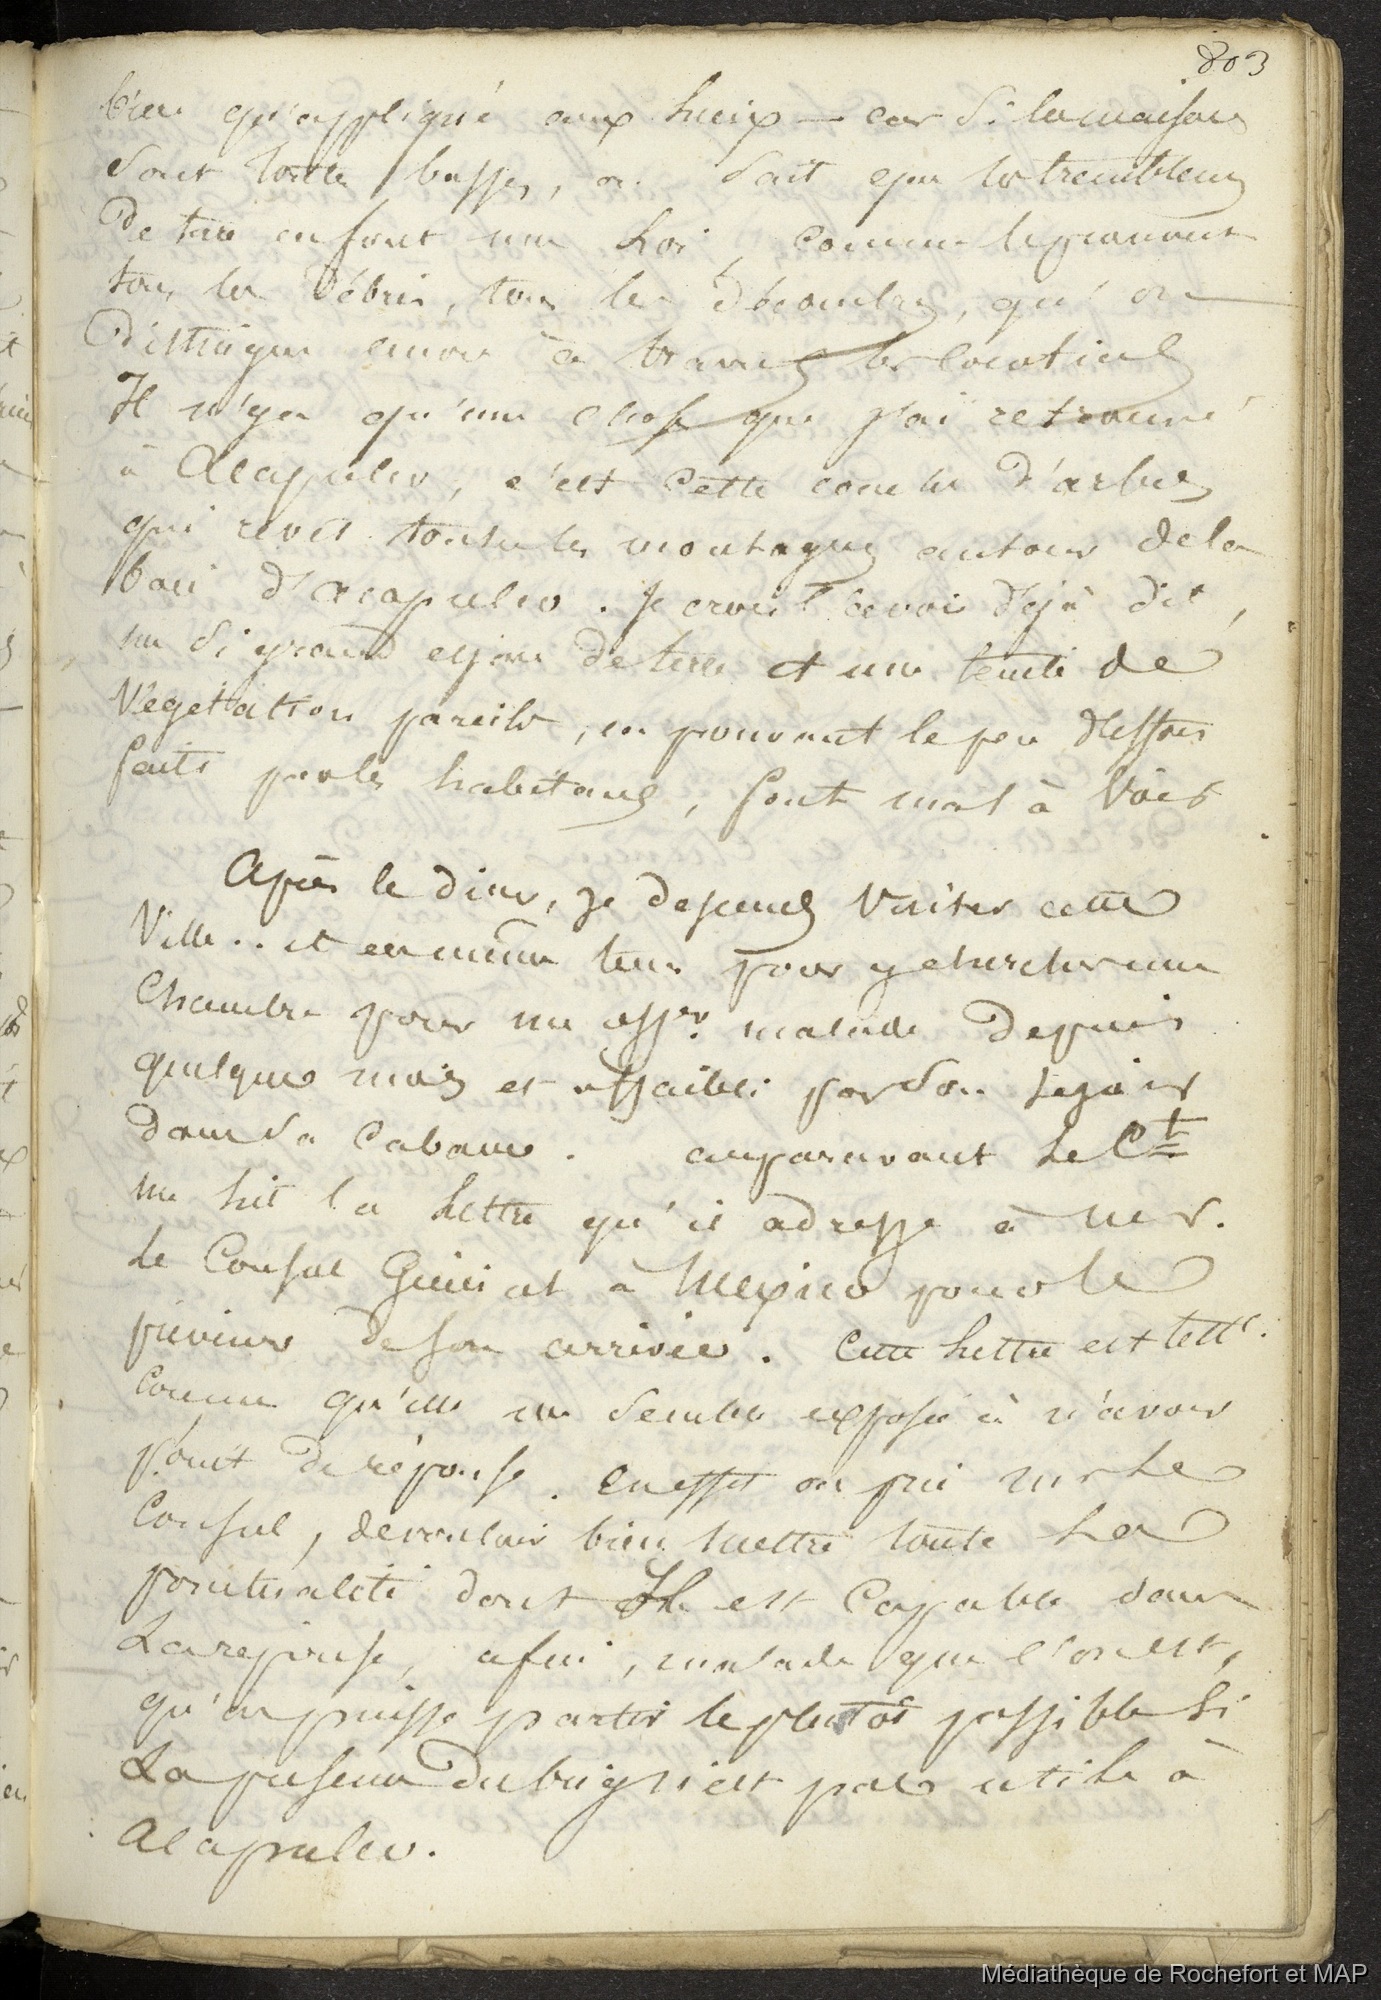 803
bien qu'appliqué aux lieux — car si les maisons
sont toutes basses, on sait que les tremblemens
De terre en font une loi, comme le prouvent
tous les Débris, tous les décombres, qu'on
Distingue encore à travers les
Il n'y a qu'une chose que j'ai retrouvé
à Acapulco, c'est cette couche d'arbres
qui revêt toutes les montagnes autour de la
baie d'Acapulco. Je crois l'avoir déjà dit,
un si grand espace de terre et une teinte de
Végétation pareille, en prouvant le peu d'efforts
faits par les habitans, font mal à Voir
Après le diner, je descends Visiter cette
Ville.. et en même tems pour y chercher une
Chambre pour un offer. malade Depuis
quelques mois et affaibli par son séjour
dans sa Cabane. auparavant Le Ct
me lit la Lettre qu'il adresse à Mr.
Le Consul Général à Mexico pour le
prévenir de son arrivée. Cette Lettre est tellt.
Connue qu'elle me semble exposée à n'avoir
point de réponse. En effet on prie Mr Le
Consul, de vouloir bien mettre toute La
pontualité dont Il est Capable dans
La réponse, afin, malade que l'on est,
qu'on puisse partir le plutôt possible Si
La présence du brig n'est pas utile à
Acapulco.
Médiathèque de Rochefort et MAP